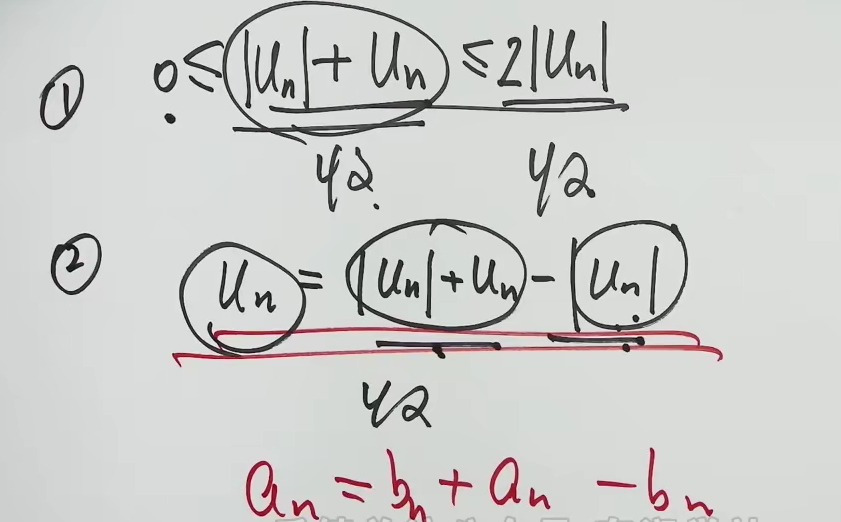 ① 0 ≤ |Uₙ| + Uₙ ≤ 2|Uₙ|
收 收
② Uₙ = |Uₙ| + Uₙ - |Uₙ|
收
aₙ = bₙ + aₙ - bₙ